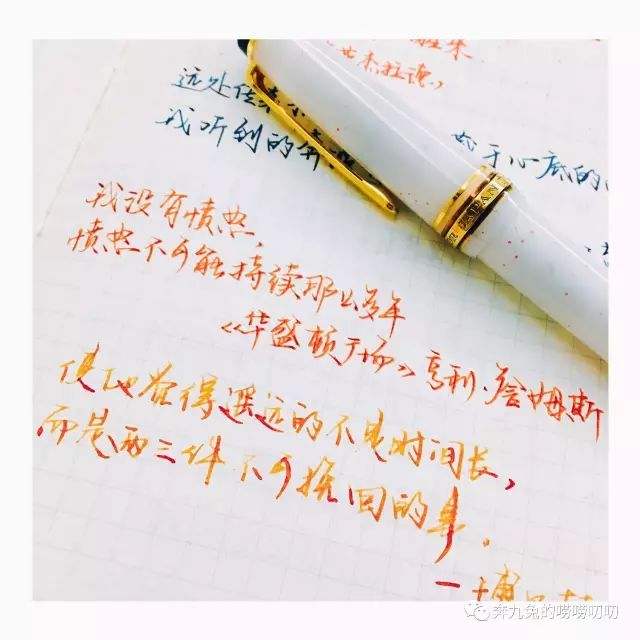 杰拉德
远处传来
于心底的
我听到的奔
JAPAN
我没有愤怒，
愤怒不可能持续那么多年
《华盛顿广场》亨利·詹姆斯
使他觉得遥远的不是时间长，
而是两三件不可挽回的事。
一博
奔九兔的唠唠叨叨